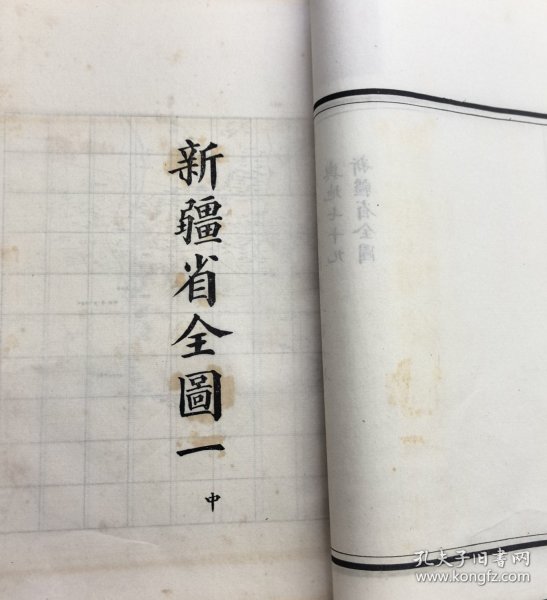 新疆省全圖一
中
新疆省全圖
輿地七十九
孔夫子旧书网
www.kongfz.com